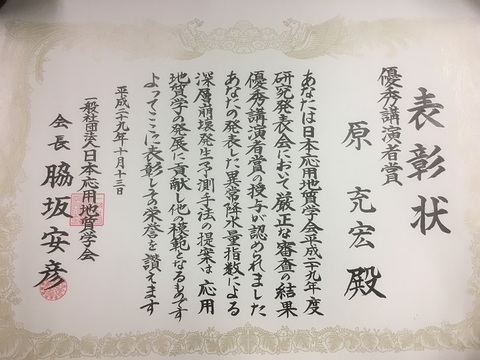 表彰状
優秀講演者賞
原 克宏 殿
あなたは日本応用地質学会平成二十九年度
研究発表会において厳正な審査の結果
優秀講演者賞の授与が認められました
あなたの発表した異常降水量指数による
深層崩壊発生予測手法の提案は 応用
地質学の発展に貢献し他の模範となるものです
よってここに表彰しその栄誉を讃えます
平成二十九年十月十三日
一般社団法人日本応用地質学会
会長 脇坂安彦